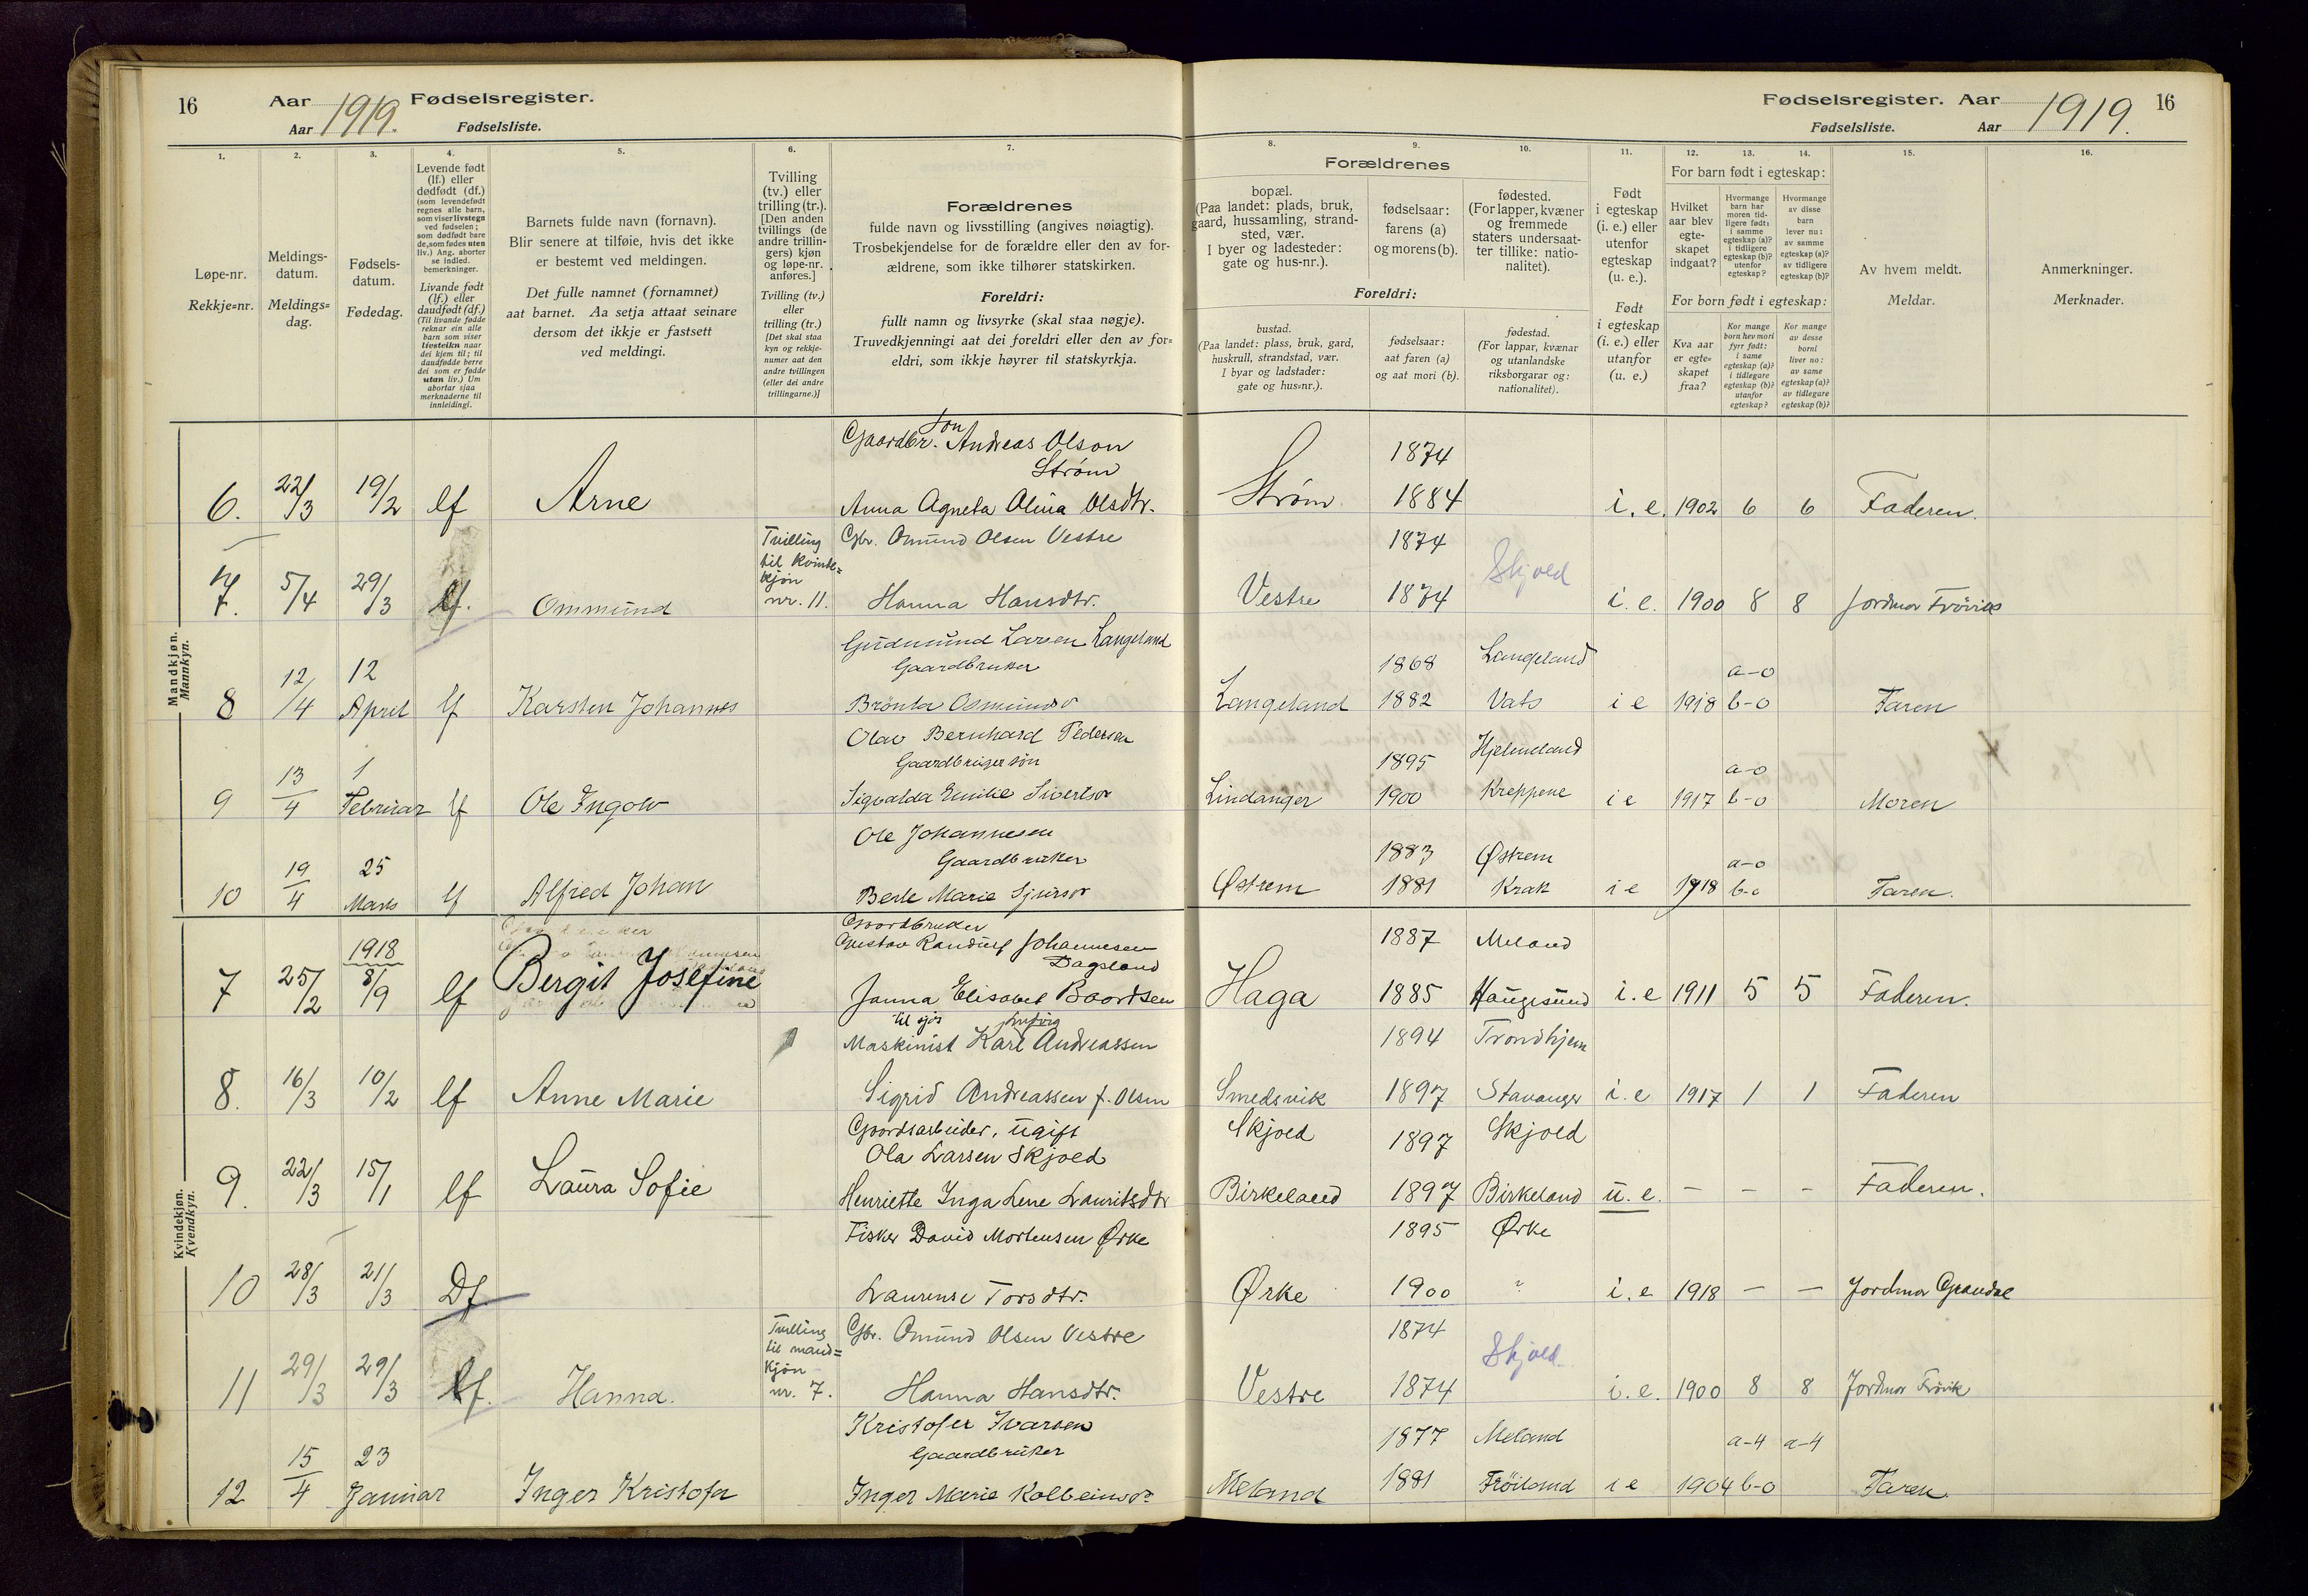 16 Aar 1919. Fødselsregister.
Aar Fødselsliste.
1. 2. 3. 4. 5. 6. 7.
Løpe-nr.
Rekkje=nr.
Meldings-
datum.
Meldings=
dag.
Fødsels-
datum.
Fødedag.
Levende født
(lf.) eller
dødfødt (df.)
(som levendefødt
regnes alle barn,
som viser livstegn
ved fødselen;
som dødfødt bare
de, som fødes uten
liv.) Ang. aborter
se indled.
bemerkninger.
Livande født
(lf.) eller
daudfødt (df.)
(Til livande fødde
reknar ein alle
barn som viser
livsteikn naar
dei kjem til; til
daudfødde berre
dei som er fødde
utan liv.) Um
abortar sjaa
merknaderne til
innleidingi.
Barnets fulde navn (fornavn).
Blir senere at tilføie, hvis det ikke
er bestemt ved meldingen.
Det fulle namnet (fornamnet)
aat barnet. Aa setja attaat seinare
dersom det ikkje er fastsett
ved meldingi.
Tvilling
(tv.) eller
trilling (tr.).
[Den anden
tvillings (de
andre trillin-
gers) kjøn
og løpe-nr.
anføres.]
Tvilling (tv.)
eller
trilling (tr.)
[Det skal staa
kyn og rekkje-
numer aat den
andre tvillingen
(eller dei andre
trillingarne.)]
Forældrenes
fulde navn og livsstilling (angives nøiagtig).
Trosbekjendelse for de forældre eller den av for-
ældrene, som ikke tilhører statskirken.
Foreldri:
fullt namn og livsyrke (skal staa nøgje).
Truvedkjenningi aat dei foreldri eller den av for=
eldri, som ikkje høyrer til statskyrkja.
Mandkjøn.
Mannkyn.
Gaardbr. Andreas Olson
Strøm
6. 22/3 19/2 lf Arne Anna Agneta Olina Olsdtr.
Tvilling
til kvinde=
kjøn
nr. 11.
Gbr. Omund Olsen Vestre
7. 5/4 29/3 lf. Ommund Hanna Hansdtr.
Gudmund Larsen Langeland
Gaardbruker
8 12/4 12 April lf Karsten Johannes
Olav Bernhard Pedersen
9 13/4 1 Februar lf Ole Ingolv
Ole Johannesen
Gaardbruker
10 19/4 25 Mars lf Alfred Johan Berte Marie
Kvindekjøn.
Kvendkyn.
Gaardbruker
Gustav Johannesen
Dagsland
7 25/2 1918 8/9 lf Bergit Josefine Janna Elisabet Baardsen
til sjøs
Maskinist Karl Andreassen
8. 16/3 10/2 lf Anne Marie Sigrid Andreassen f. Olsen
Gaardsarbeider, ugift
Ola Larsen Skjold
9. 22/3 15/1 lf Laura Sofie Henriette Inga Lene Lauritsdtr
Fisker David Mortensen Ørke
10 28/3 21/3 Df. Laurense Torsdtr.
Tvilling
til mand=
kjøn
nr. 7.
Gbr. Omund Olsen Vestre
11 29/3 29/3 lf. Hanna. Hanna Hansdtr.
Kristofer Ivarsen
Gaardbruker
12 15/4 23 Januar Inger Kristofa Inger Marie
Fødselsregister. Aar 1919. 16
Fødselsliste. Aar
8. 9. 10. 11. 12. 13. 14. 15. 16.
Forældrenes
bopæl.
(Paa landet: plads, bruk,
gaard, hussamling, strand-
sted, vær.
I byer og ladesteder:
gate og hus-nr.).
fødselsaar:
farens (a)
og morens (b).
fødested.
(For lapper, kvæner
og fremmede
staters undersaat-
ter tillike: natio-
nalitet).
Foreldri:
bustad.
(Paa landet: plass, bruk, gard,
huskrull, strandstad, vær.
I byar og ladstader:
gate og hus=nr.).
fødselsaar:
aat faren (a)
og aat mori (b).
fødestad.
(For lappar, kvænar
og utanlandske
riksborgarar og:
nationalitet).
Født
i egteskap
(i. e.) eller
utenfor
egteskap
(u. e.).
Født
i egteskap
(i. e.) eller
utanfor
(u. e.)
For barn født i egteskap:
Hvilket
aar blev
egte-
skapet
indgaat?
Hvormange
barn har
moren tid-
ligere født:
i samme
egteskap (a)?
i tidligere
egteskap (b)?
utenfor
egteskap?
Hvormange
av disse
barn
lever nu:
av samme
egteskap (a)?
av tidligere
egteskap (b)?
For born født i egteskap:
Kva aar
er egte=
skapet
fraa?
Kor mange
born hev mori
fyrr født:
i same
egteskap (a)?
i tidlegare
egteskap (b)?
utanfor
egteskap?
Kor mange
av desse
borni
liver no:
av same
egteskap (a)?
av tidlegare
egteskap (b)?
Av hvem meldt.
Meldar.
Anmerkninger.
Merknader.
1874
Strøm 1884 i. e. 1902 6 6 Faderen.
1874 Skjold
Vestre 1874 i. e. 1900 8 8 Jordmor
1868 Langeland a-0
Langeland 1882 Vats i e 1918 b-0 Faren
1895 Hjelmeland a-0
Lindanger 1900 Kreppene i e 1917 b-0 Moren
1883 Østrem a-0
Østrem 1881 Krak i e 1918 b-0 Faren.
1887 Meland
Haga 1885 Haugesund i. e 1911 5 5 Faderen.
1894 Trondhjem
Smedsvik 1897 Stavanger i. e 1917 1 1 Faderen
Skjold 1897 Skjold
Birkeland 1897 Birkeland u. e. – – – Faderen.
1895 Ørke
Ørke 1900 i. e 1918 – – Jordmor
1874 Skjold
Vestre 1874 i. e. 1900 8 8 Jordmor
1877 Meland a-4 a-4
Meland 1881 Frøiland i e 1904 b-0 Faren